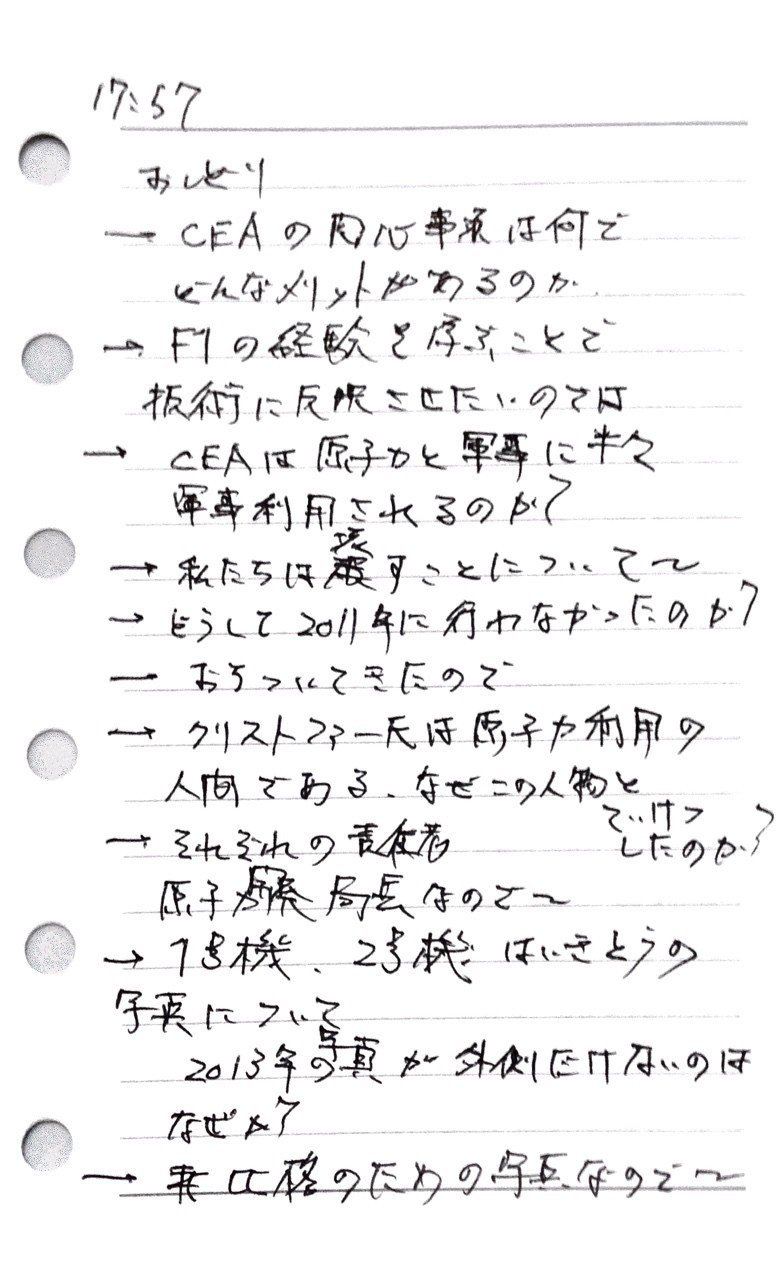 17:57
おしどり
→ CEAの関心事項は何で
どんなメリットがあるのか.
→ F1の経験を学ぶことで
技術に反映させたいのでは
→ CEAは原子力と軍事に半々
軍事利用されるのか?
→ 私たちは壊すことについて〜
→ どうして2011年に行わなかったのか?
— おちついてきたので
→ クリストファー氏は原子力利用の
人間である、なぜこの人物と
ていけつ
したのか?
→ それぞれの責任者
原子力開発局長なので〜
→ 1号機、2号機 はいきとうの
写真について
2013年の写真が外側だけないのは
なぜか?
→ 比較のための写真なので〜